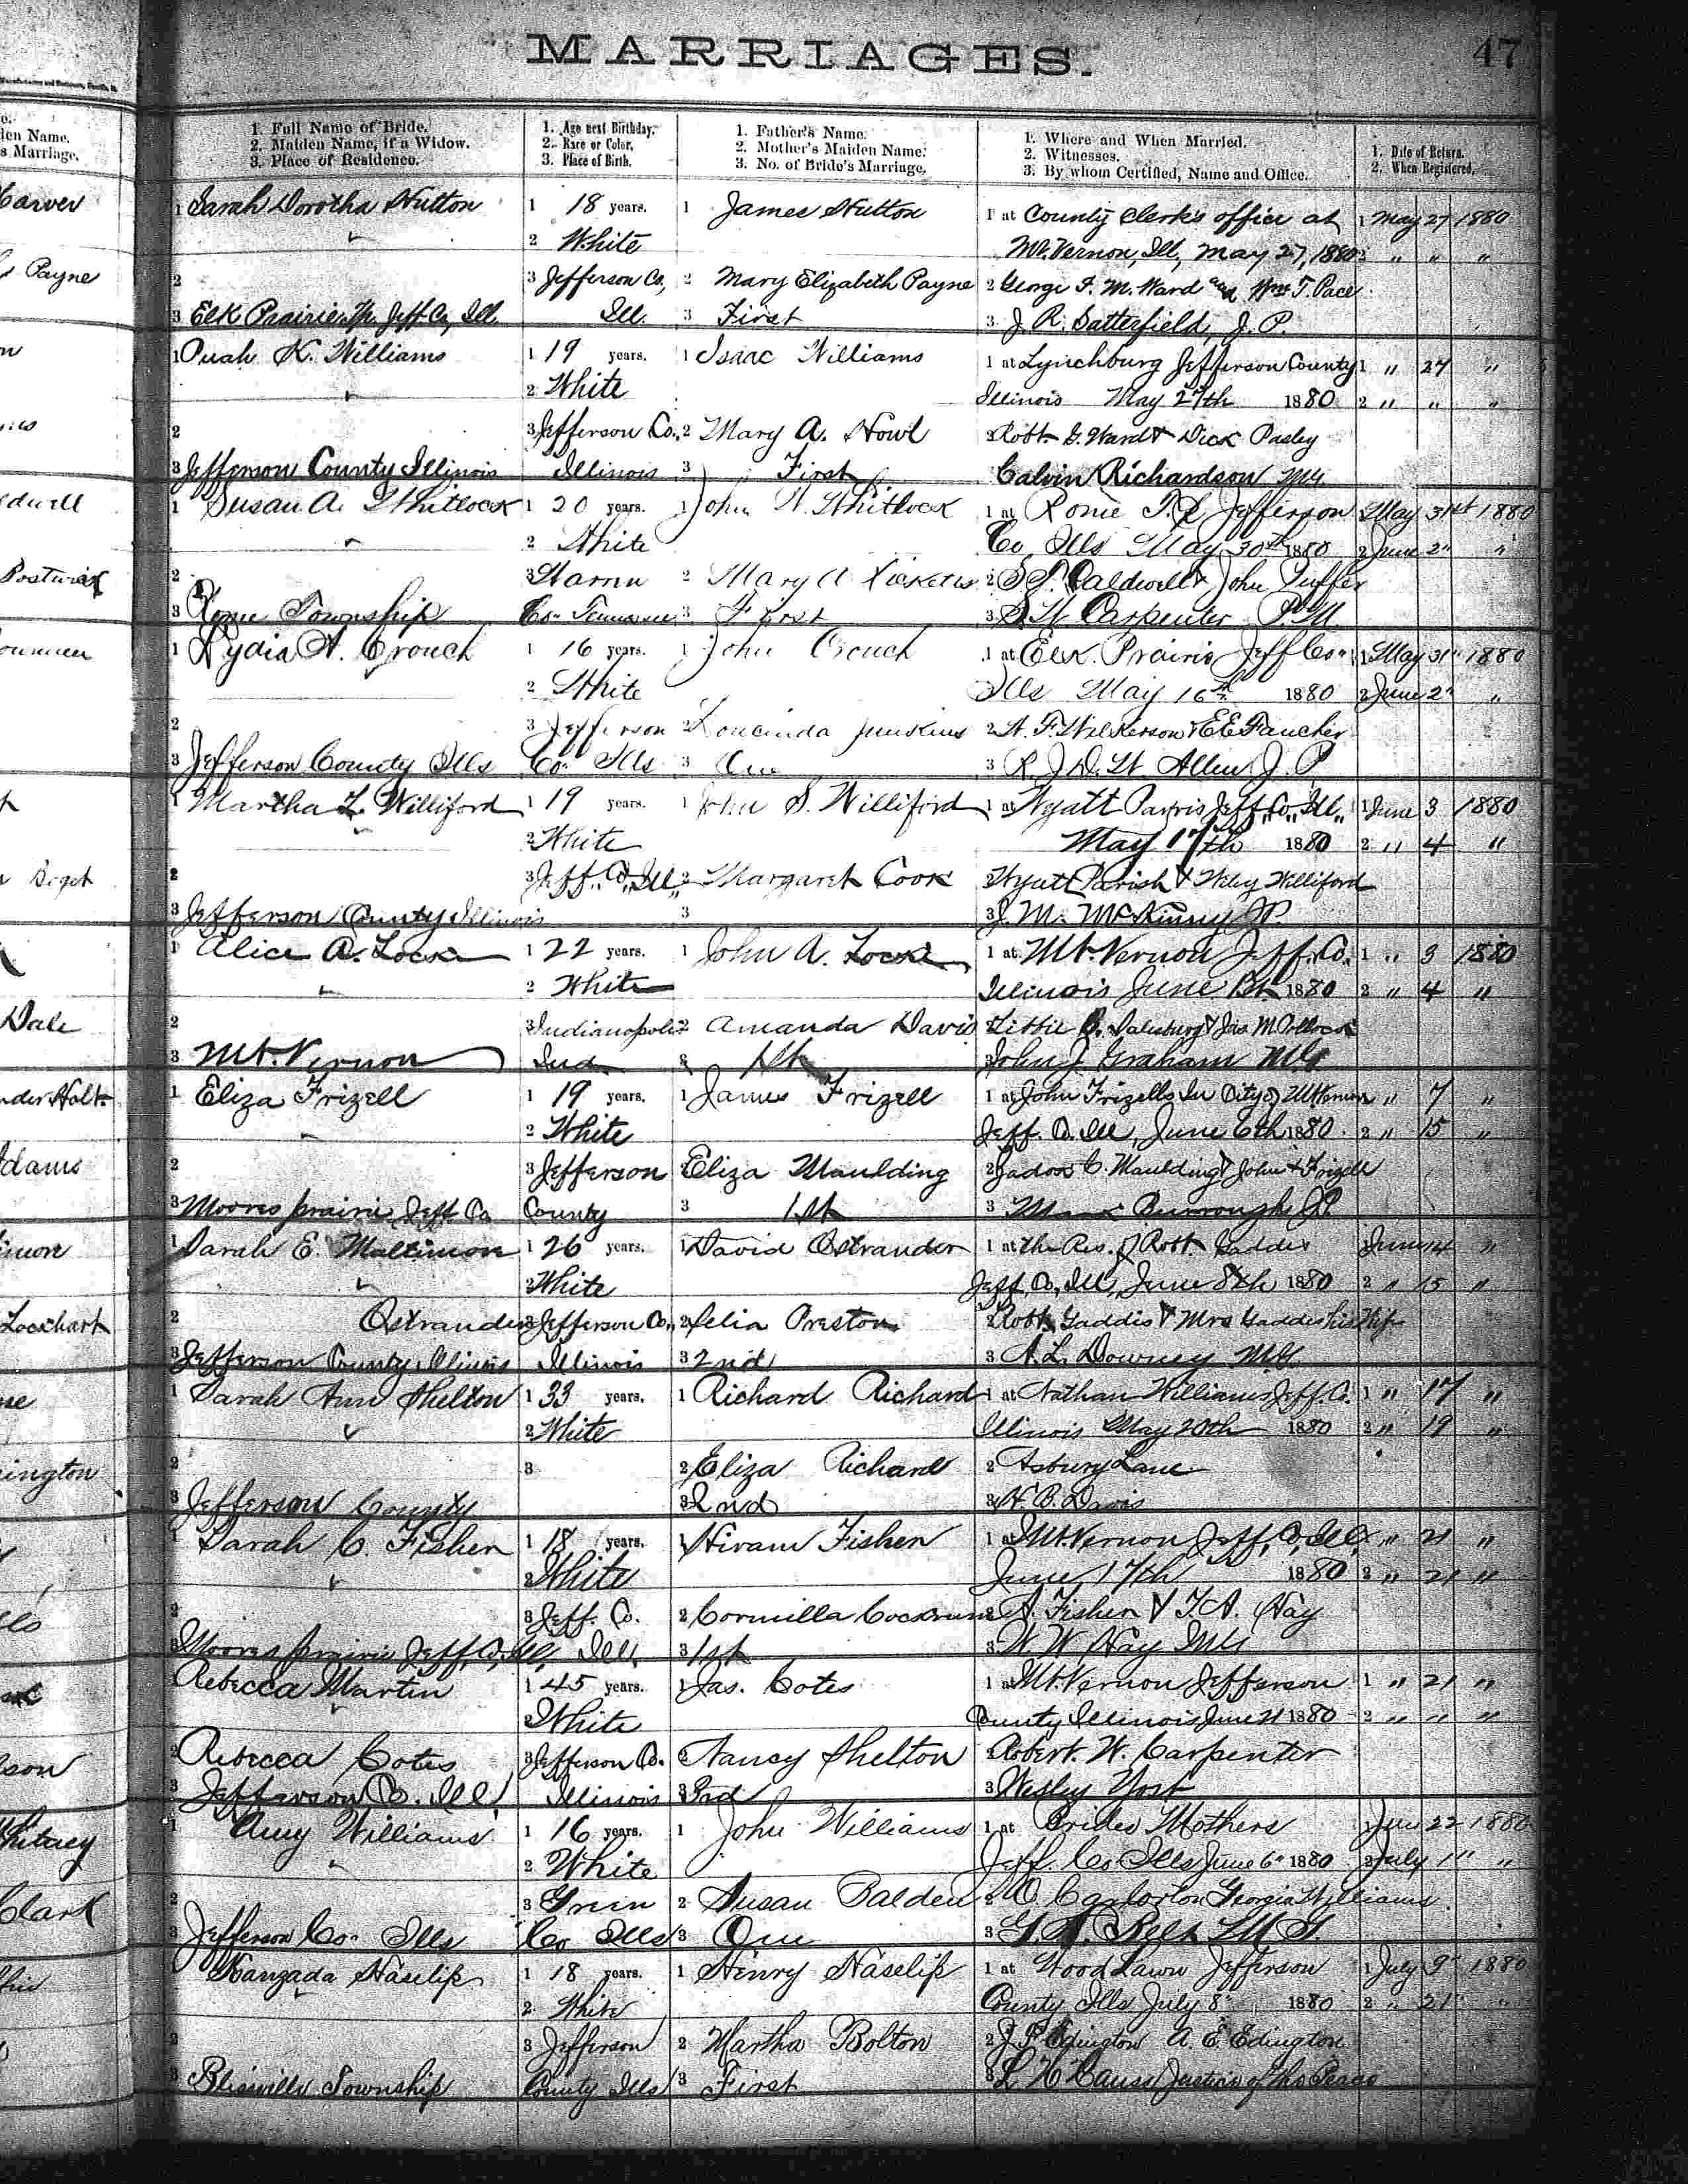 MARRIAGES.
47
1. Full Name of Bride.
2. Maiden Name, if a Widow.
3. Place of Residence.
1. Age next Birthday.
2. Race or Color.
3. Place of Birth.
1. Father's Name.
2. Mother's Maiden Name.
3. No. of Bride's Marriage.
1. Where and When Married.
2. Witnesses.
3. By whom Certified, Name and Office.
1. Date of Return.
2. When Registered.
den Name.
s Marriage.
1 Sarah Dorotha Hutton 1 18 years. 1 James Hutton 1 at County Clerks office at 1 May 27 1880
2 White Mt. Vernon, Ill, May 27, 1880 2 " " "
Payne
2 3 Jefferson Co., 2 Mary Elizabeth Payne 2 George F. M. Ward and Wm T. Pace
3 Elk Prairie Tp. Jeff Co, Ill. Ill. 3 First 3 J. R. Satterfield, J. P.
1 Puah K. Williams 1 19 years. 1 Isaac Williams 1 at Lynchburg Jefferson County 1 " 27 "
2 White Illinois May 27th 1880 2 " " "
2 3 Jefferson Co., 2 Mary A. Howl 2 Robt G. Ward & Dick Pasley
3 Jefferson County Illinois Illinois 3 First Calvin Richardson MG
1 Susan A. Whitlock 1 20 years. 1 John W. Whitlock 1 at Rome T.P. Jefferson 1 May 31st 1880
2 White Co Ills May 30th 1880 2 June 2" "
2 3 2 Mary A 2 S. P. Caldwell & John Puffer
3 Rome Township Co. Tennessee 3 First 3 S W Carpenter
1 Lydia A. Crouch 1 16 years. 1 John Crouch 1 at Elk Prairie Jeff Co. 1 May 31" 1880
2 White Ills May 16th 1880 2 June 2" "
2 3 Jefferson 2 Loucinda Junkins 2 W. F. Wilkerson & E E Fancher
3 Jefferson County Ills Co. Ills 3 One 3 R. J. D. W. Allen J. P
1 Martha L. Williford 1 19 years. 1 John S. Williford 1 at Wyatt Parris Jeff. Co. Ill. 1 June 3 1880
2 White May 17th 1880 2 " 4 "
2 3 Jeff. Co. Ill. 2 Margaret Cook 2 Wyatt Parish & Wiley Williford
3 Jefferson County Illinois 3 3 J. M. McKinney JP.
1 Alice A. Locke 1 22 years. 1 John A. Locke 1 at Mt. Vernon Jeff. Co. 1 " 3 1880
2 White Illinois June 1st 1880 2 " 4 "
Dale
2 3 Indianapolis 2 Amanda Davis 2 Libbie B. Salisbury & Jas M. Pollock
3 Mt. Vernon Ind 3 1st John J. Graham MG
1 Eliza Frizell 1 19 years. 1 James Frizell 1 at John Frizells In City of Mt Vernon " 7 "
2 White Jeff. Co. Ill, June 6th 1880 2 " 15 "
Adams
2 3 Jefferson 2 Eliza Maulding 2 Zadok C. Maulding & John Frizell
3 Moores prairie Jeff Co County 3 1st 3 Burrough JP
1 Sarah E. 1 26 years. 1 David Ostrander 1 at the Res. of Robt Gaddis June 14 "
2 White Jeff. Co, Ill, June 8th 1880 2 " 15 "
Lockhart
2 Ostrander 3 Jefferson Co., 2 Celia Preston 2 Robt Gaddis & Mrs Gaddis his Wife
3 Jefferson County Illinois Illinois 3 2nd 3 A. L. Downey MG
1 Sarah Ann Shelton 1 33 years. 1 Richard Richard 1 at Nathan Williams Jeff. Co. 1 " 17 "
2 White Illinois May 20th 1880 2 " 19 "
2 3 2 Eliza Richard 2 Asbury Lane
3 Jefferson County 3 2nd 3 H. B. Davis
1 Sarah C. Fisher 1 18 years. 1 Hiram Fisher 1 at Mt. Vernon Jeff, Co, Ill. " 21 "
2 White June 17th 1880 2 " 21 "
2 3 Jeff. Co. 2 Cormilla Cockrum 2 A. Fisher & T. A. Hay
3 Moores prairie Jeff, Co, Ill, Ill. 3 1st 3 W W Hay MG
1 Rebecca Martin 1 45 years. 1 Jas. Cotes 1 at Mt. Vernon Jefferson 1 " 21 "
2 White County Illinois June 21 1880 2 " " "
2 Rebecca Cotes 3 Jefferson Co. 2 Nancy Shelton 2 Robert. W. Carpenter
3 Jefferson Co. Ill Illinois 3 3rd 3 Wesley Yost
1 Amy Williams 1 16 years. 1 John Williams 1 at Brides Mothers June 22 1880
2 White Jeff. Co Ills June 6" 1880 2 July 1" "
Clark
2 3 Green 2 Susan Balden 2 O. Carlorton Georgia Williams
3 Jefferson Co. Ills Co Ills 3 One 3
Kanzada Haselip 1 18 years. 1 Henry Haselip 1 at Wood Lawn Jefferson 1 July 9" 1880
2 White County Ills July 8" 1880 2 " 21" "
2 3 Jefferson 2 Martha Bolton 2 J. P. Edington A. E Edington
3 Blissville Township County Ills 3 First 3 Justice of the Peace